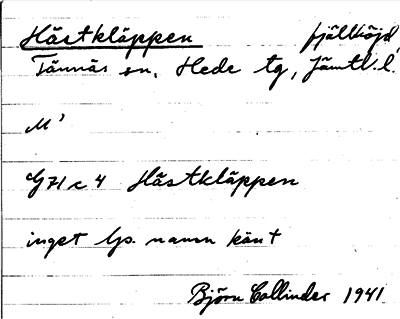 Hästkläppen fjällhöjd
Tännäs sn, Hede tg, Jämtl. l.
M'
G71 c 4 Hästkläppen
inget lp. namn känt
Björn Collinder 1941